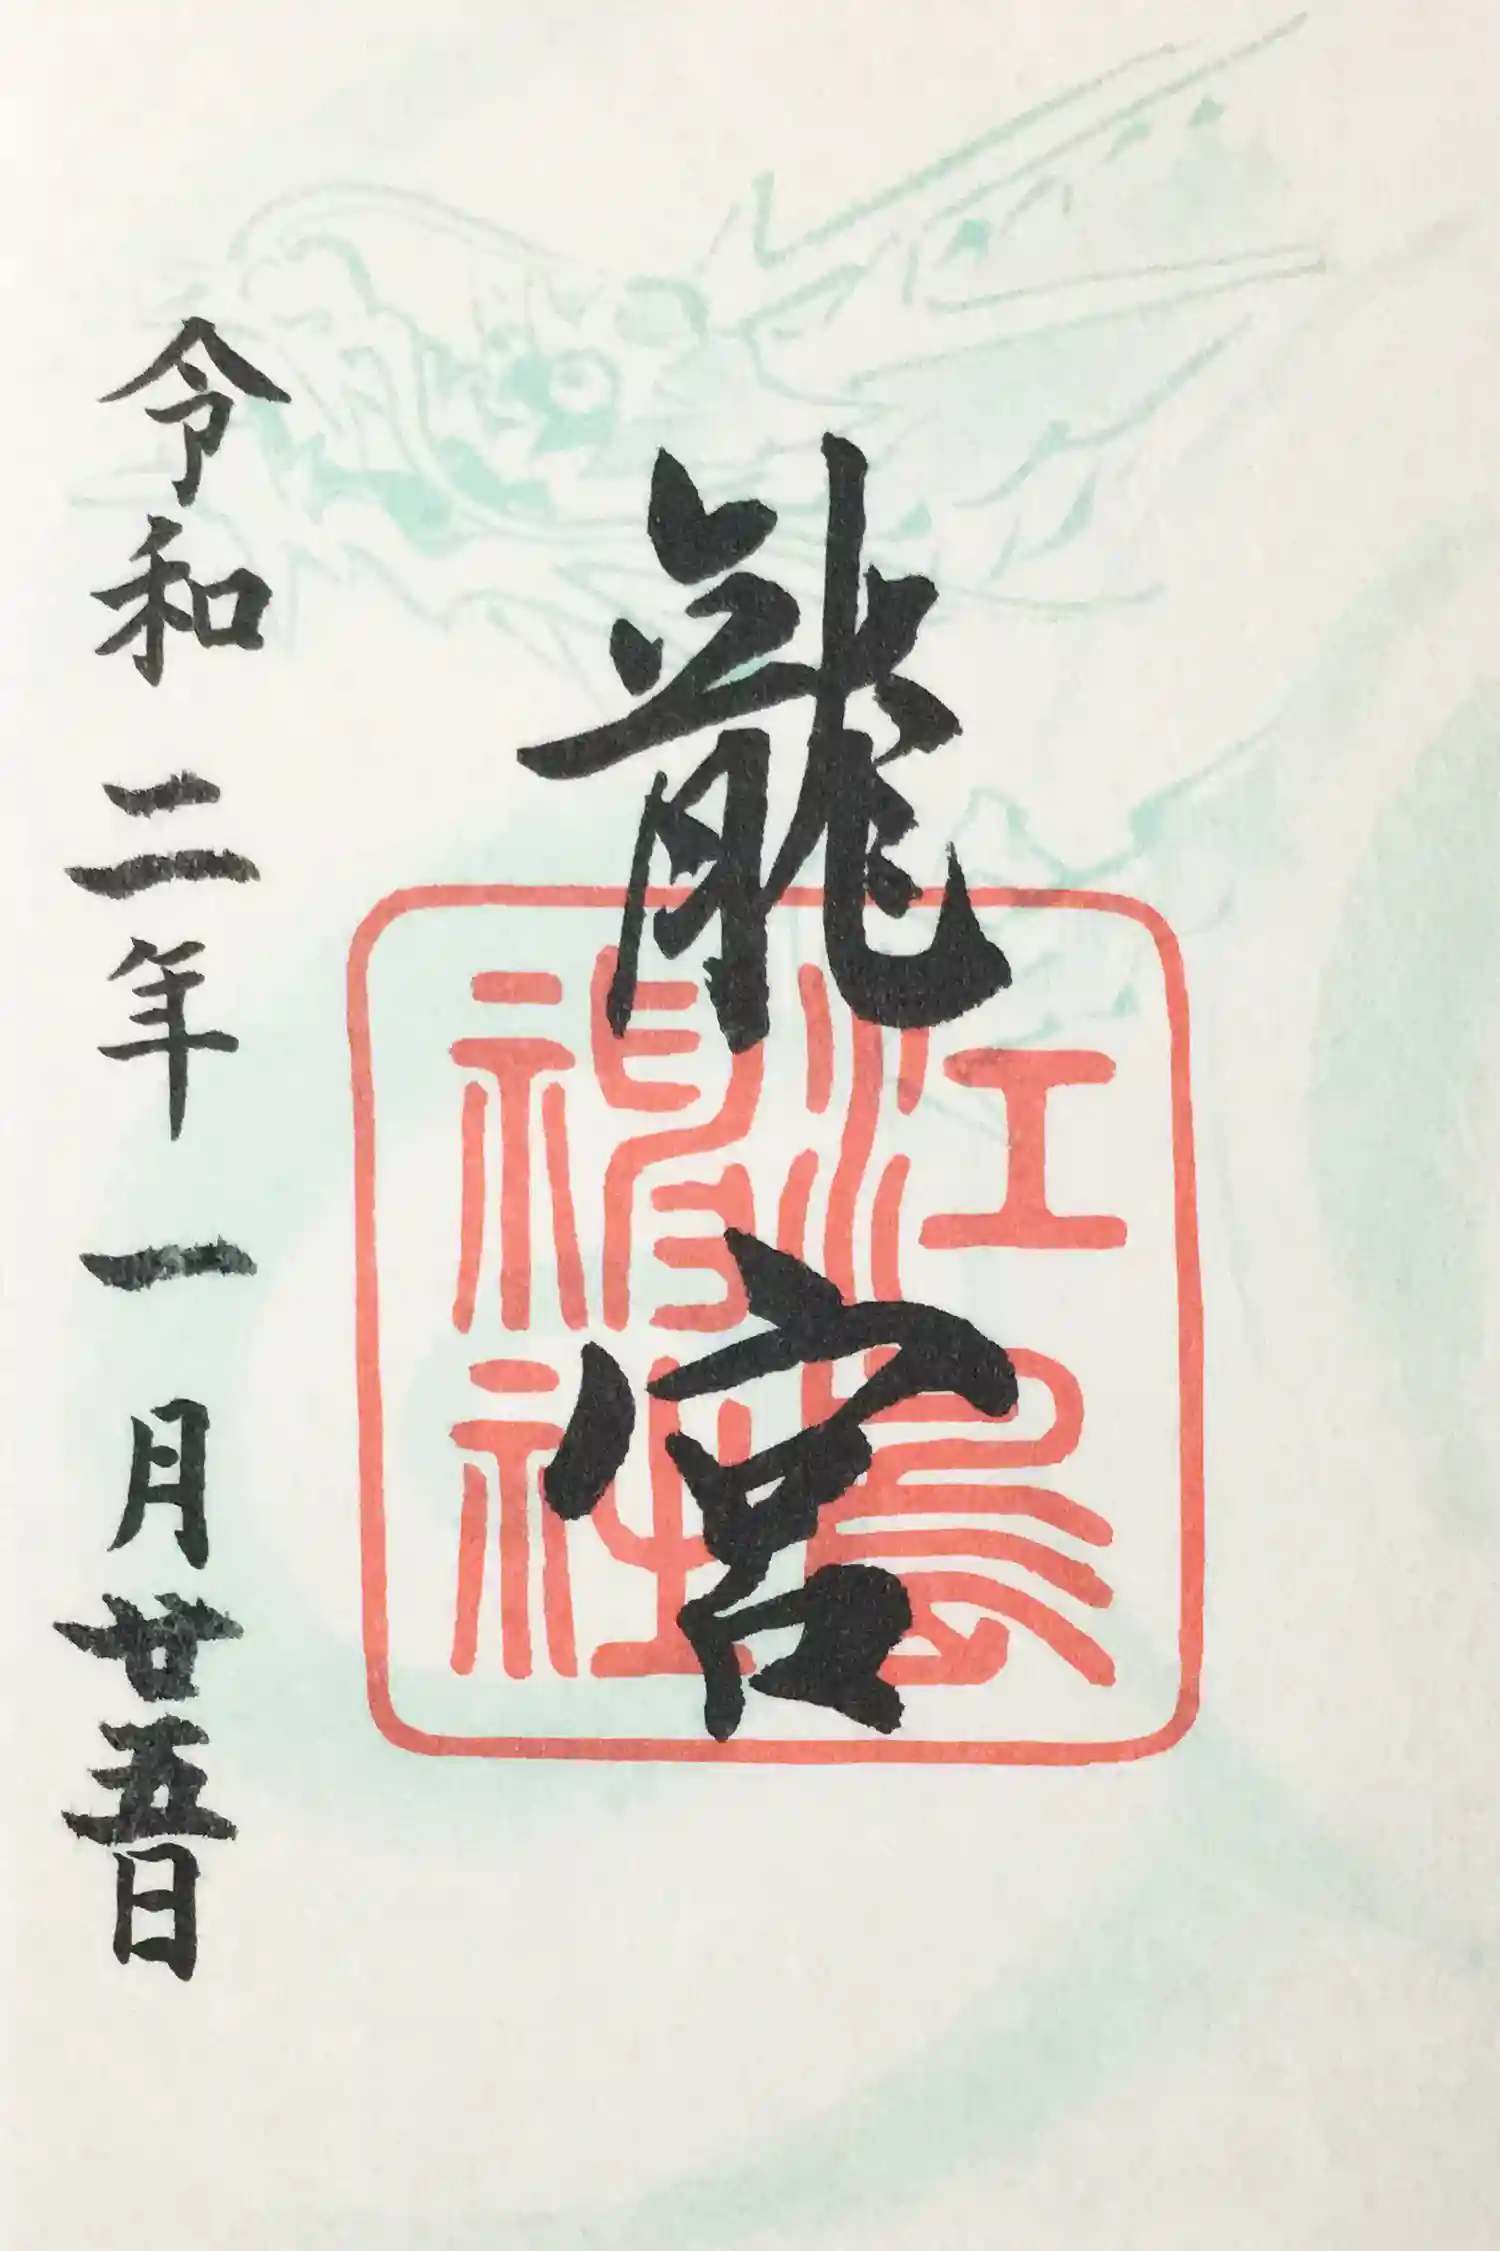 龍宮
江島神社
令和二年一月廿五日